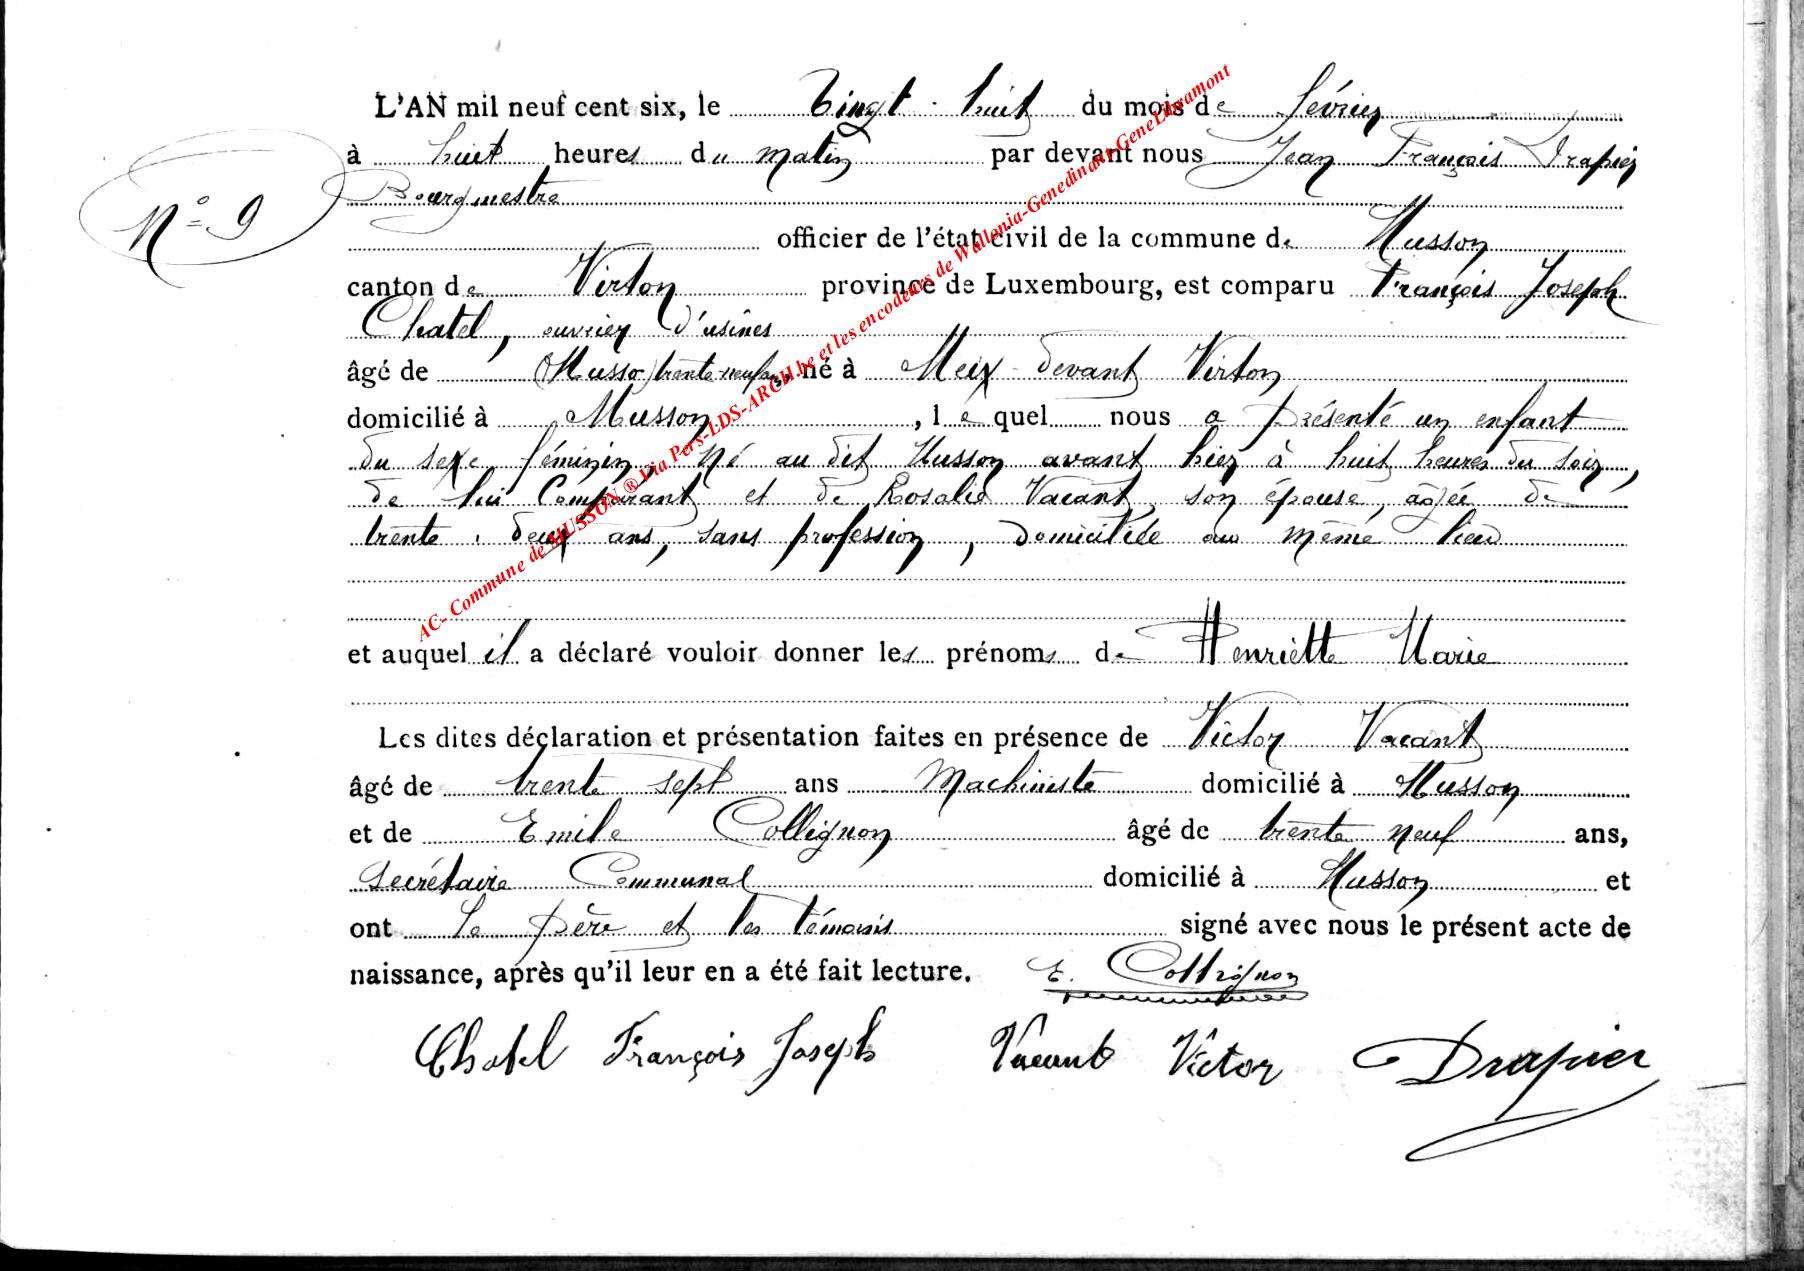 L'AN mil neuf cent six, le vingt-huit du mois de février
à huit heures du matin par devant nous Jean François Drapier
Bourgmestre
N° 9
officier de l'état civil de la commune de Musson
canton de Virton province de Luxembourg, est comparu François Joseph
Chatel, ouvrier d'usines
âgé de (Musso) trente-neuf ans, né à Meix-devant Virton
domicilié à Musson, lequel nous a présenté un enfant
du sexe féminin, né au dit Musson avant hier à huit heures du soir,
de lui Comparant et de Rosalie Vacant, son épouse, âgée de
trente-deux ans, sans profession, domiciliée au même lieu
et auquel il a déclaré vouloir donner les prénoms de Henriette Marie
Les dites déclaration et présentation faites en présence de Victor Vacant
âgé de trente sept ans Machiniste domicilié à Musson
et de Emile Collignon âgé de trente neuf ans,
Secrétaire Communal domicilié à Musson et
ont le père et les témoins signé avec nous le présent acte de
naissance, après qu'il leur en a été fait lecture. E. Collignon
Chatel François Joseph Vacant Victor Drapier
AC- Commune de MUSSON ® Via Pers-LDS-ARCH.be et les encodeurs de Wallonia-Genedinant-GeneLibramont